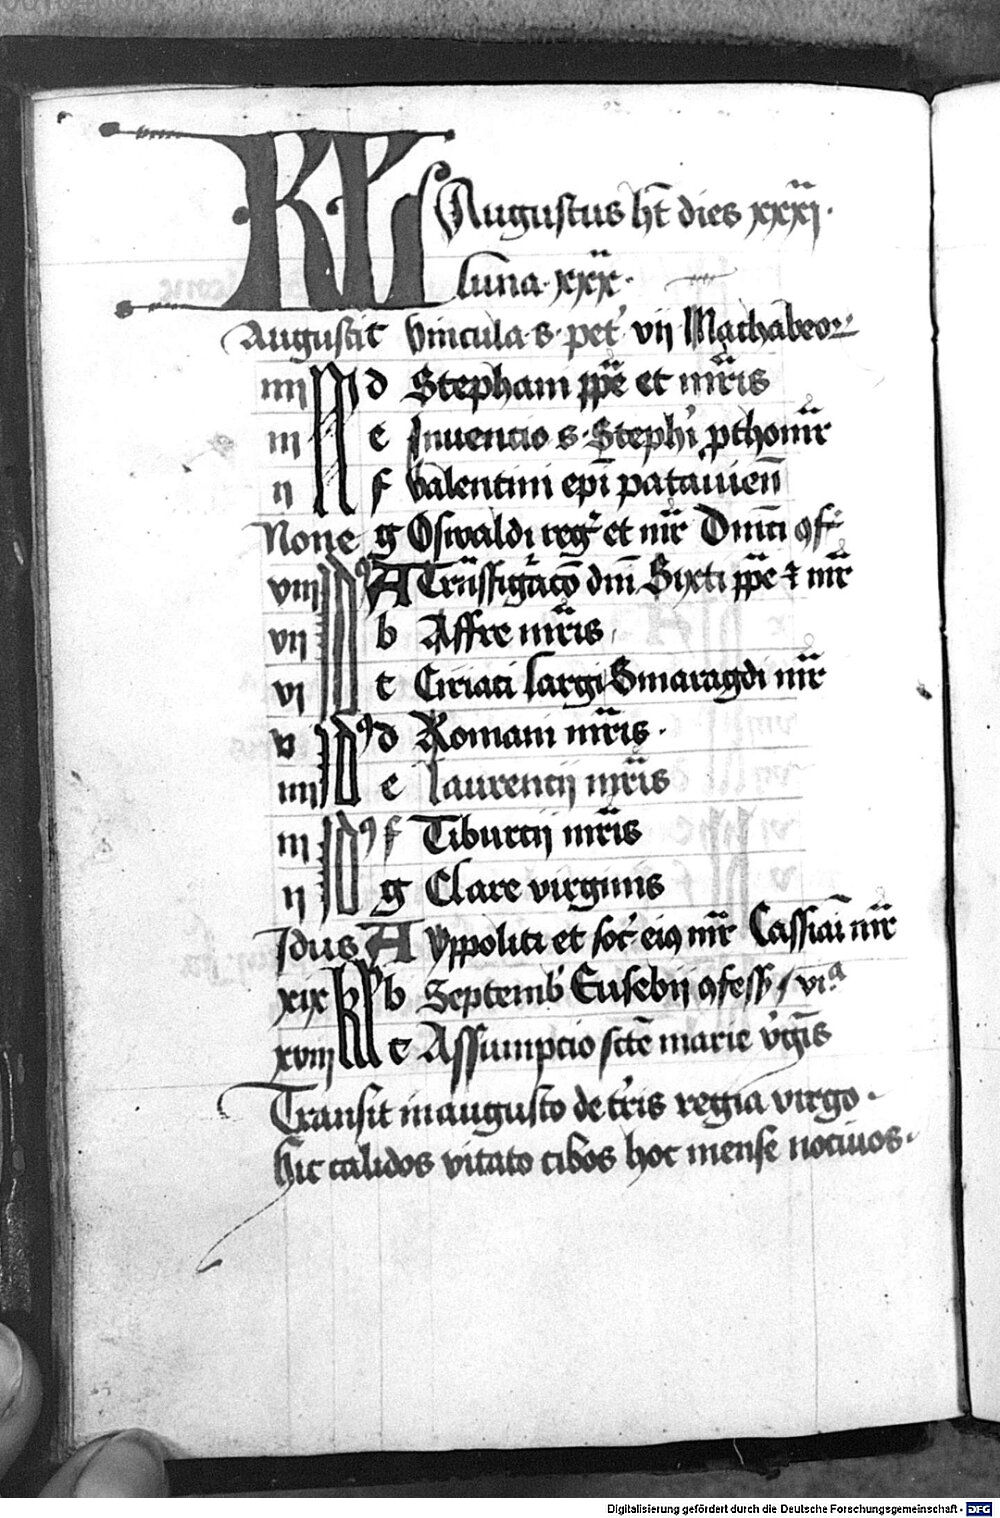 KL Augustus ht dies xxxi.
luna. xxx.
Augusti c vincula. s. pet' vij Machabeor
iiij N d Stephani ppe et mris
iij e Inuencio s. Steph'i pthomr
ij f valentini epi patauien
None g Oswaldi reg' et mr Dmici 9f
viij Id9 A Trnsfigraco dni Sixti ppe et mr
vij b Affre mris
vi c Ciriaci largi Smaragdi mr
v Id9 d Romani mris.
iiij e laurencij mris
iij Id9 f Tiburcij mris
ij g Clare virginis
Idus A yppoliti et soc' ei9 mr Cassiani mr
xix kl b Septemb' Eusebij 9fess / via
xviij c Assumpcio scte marie v'gis
Transit in augusto de t'ris regia virgo.
hic calidos vitato cibos hoc mense nociuos.
Digitalisierung gefördert durch die Deutsche Forschungsgemeinschaft - DFG